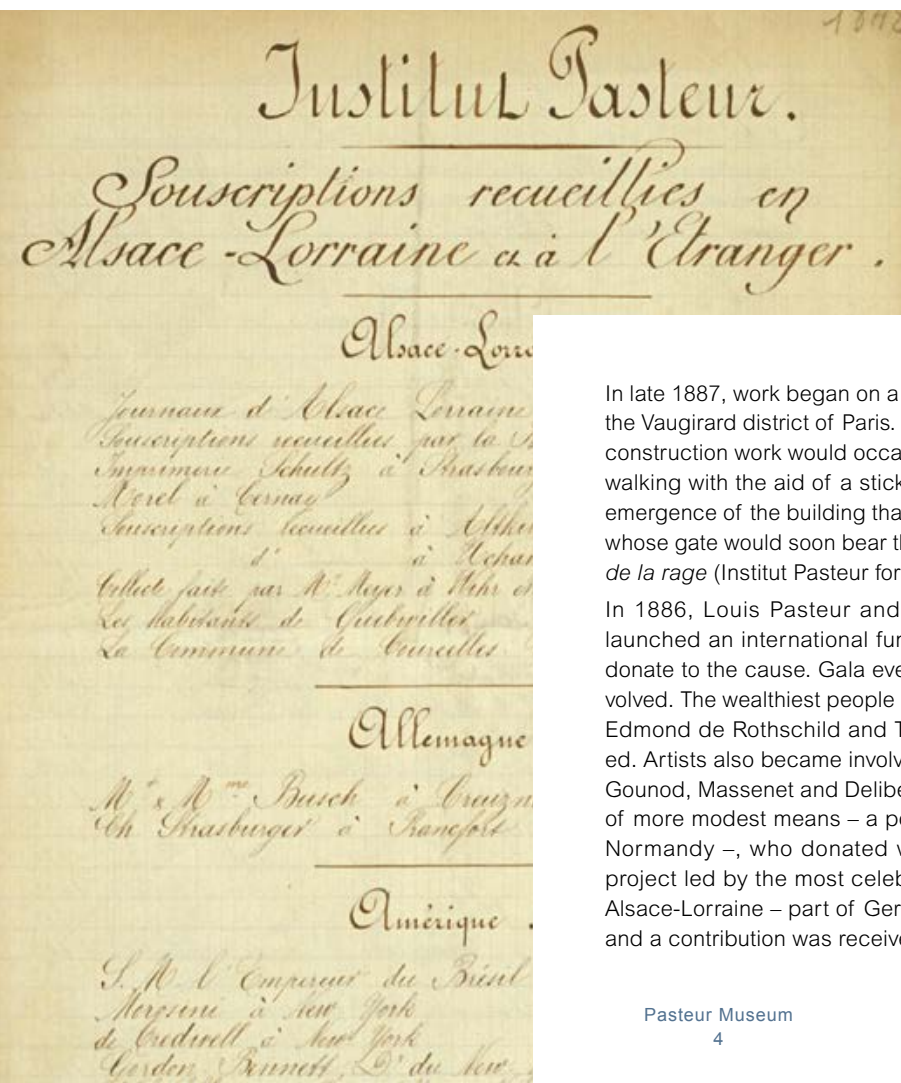 Institut Pasteur.
Souscriptions recueillies en
Alsace-Lorraine et à l'Etranger.
Alsace-Lorra
Journaux d'Alsace Lorraine
Souscriptions recueillies par la
Imprimerie Schultz à Strasbour
Morel à Cernay
Souscriptions recueillies à
d° à
Collecte faite par Mr Meyer à
Les habitants de Guebwiller
La Commune de Courcelles
Allemagne
Mr & Mme Busch à Creuzn
Ch Strasburger à Francfort
Amérique.
S. M. l'Empereur du Brésil
Morosini à New York
de Credwell à New York
Gordon Bennett, Dr du New
In late 1887, work began on a
the Vaugirard district of Paris.
construction work would occa
walking with the aid of a stick
emergence of the building tha
whose gate would soon bear th
de la rage (Institut Pasteur for
In 1886, Louis Pasteur and
launched an international fur
donate to the cause. Gala eve
volved. The wealthiest people
Edmond de Rothschild and T
ed. Artists also became involv
Gounod, Massenet and Delibe
of more modest means – a po
Normandy –, who donated v
project led by the most celeb
Alsace-Lorraine – part of Ger
and a contribution was receive
Pasteur Museum
4